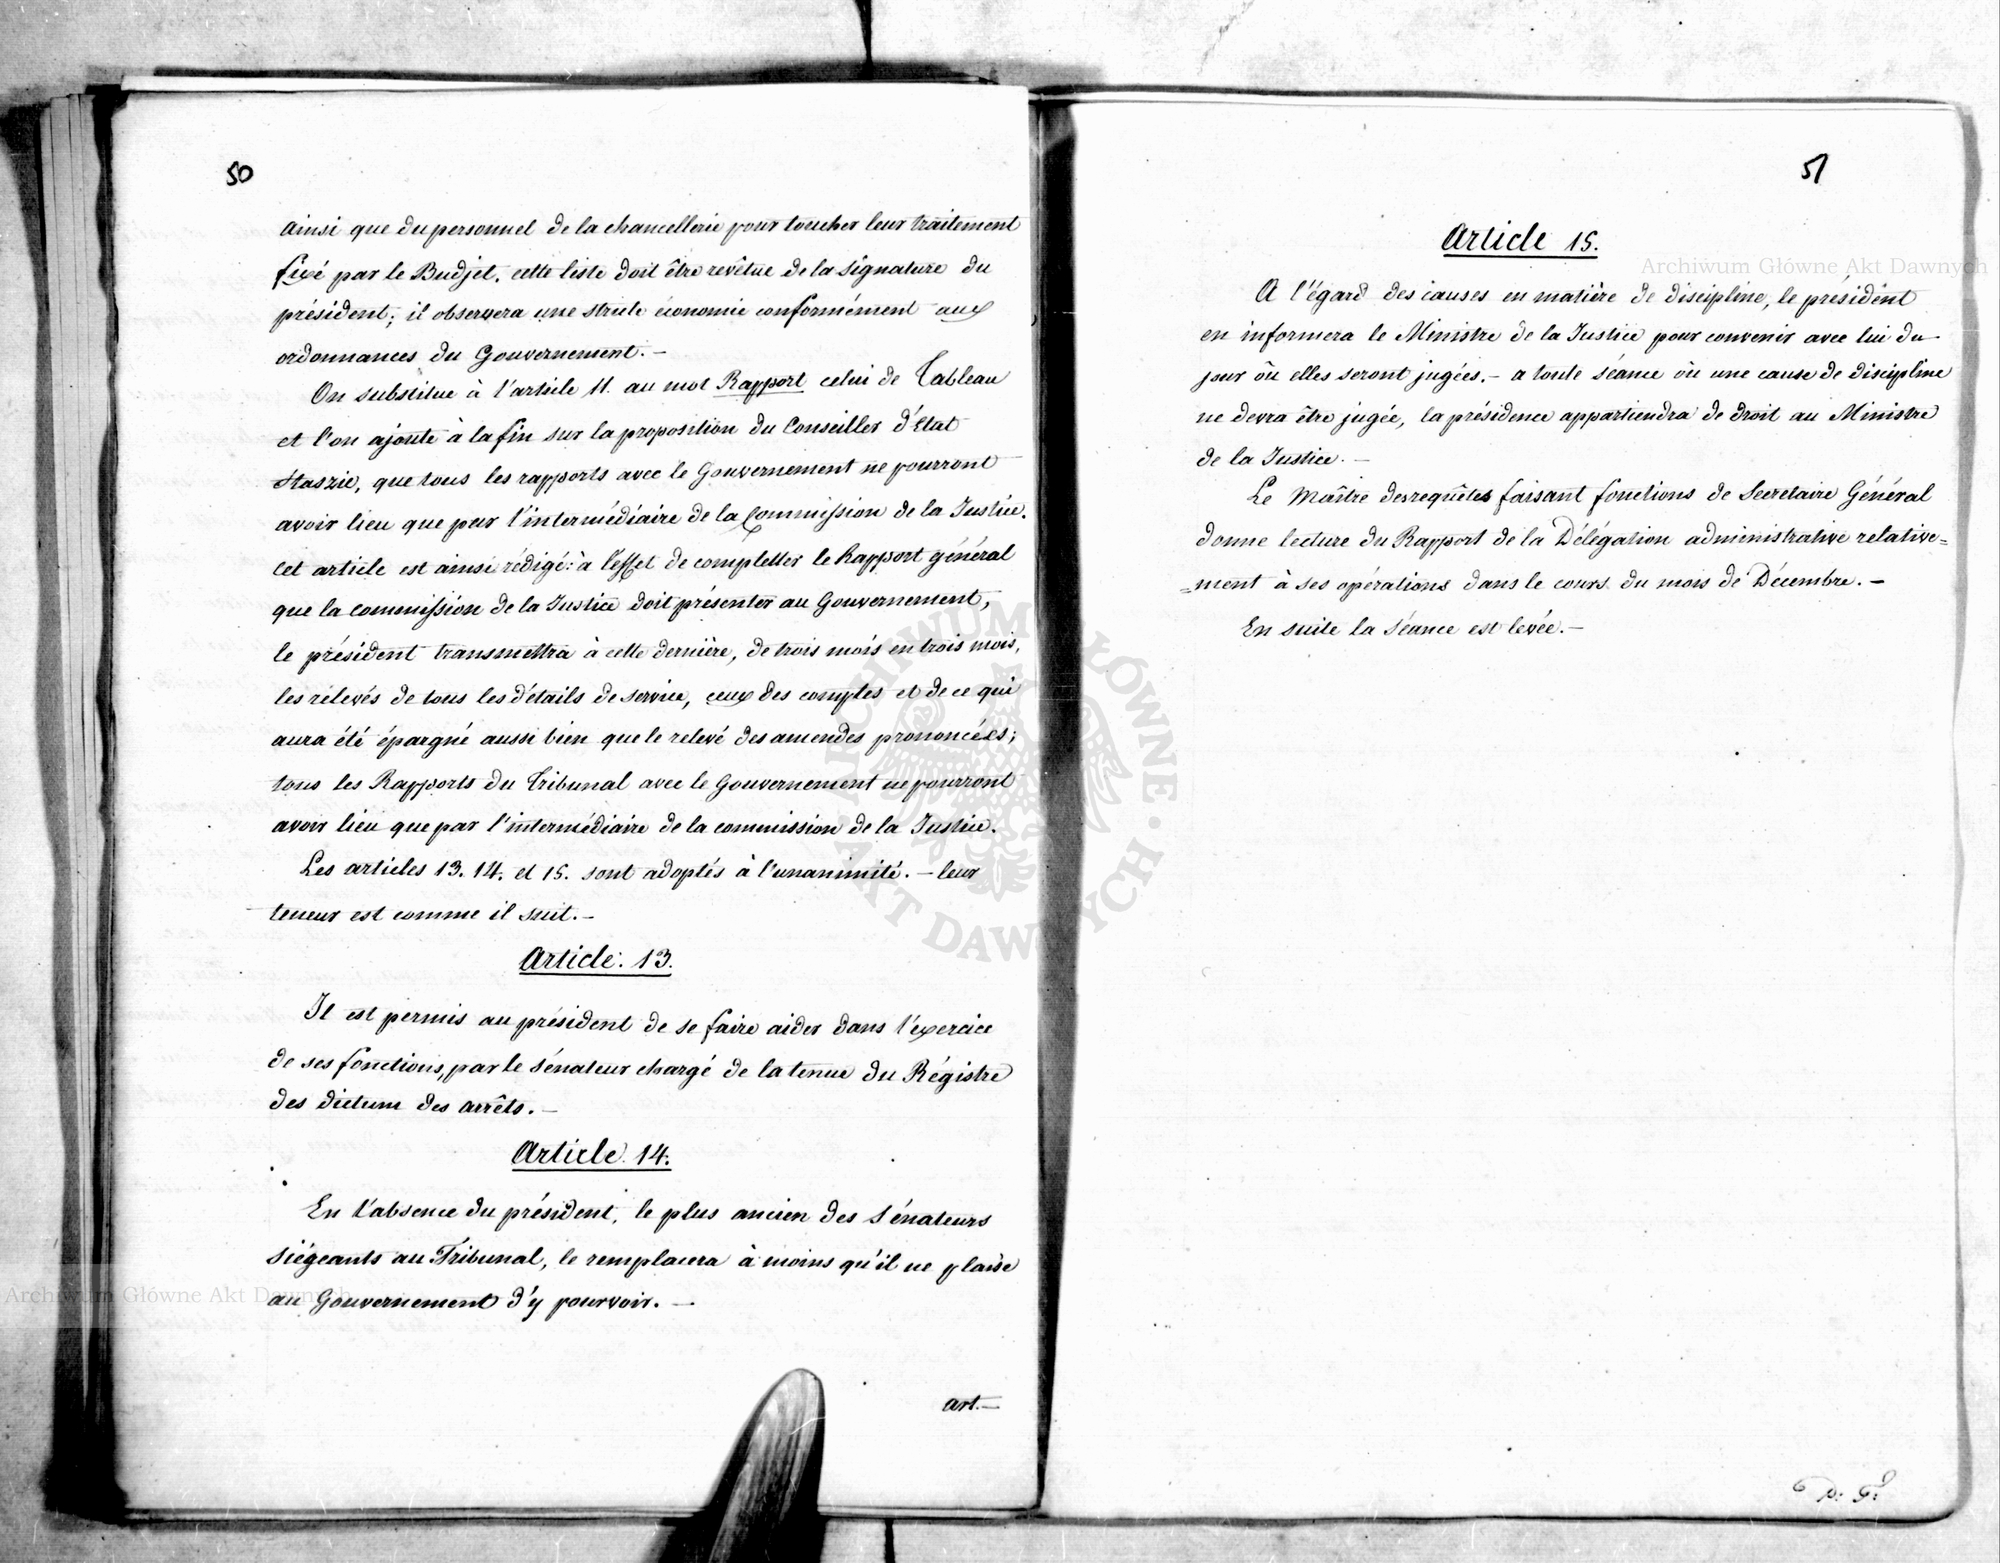 50
ainsi que du personnel de la chancellerie pour toucher leur traitement
fixé par le Budjet, cette liste doit être revêtue de la signature du
président; il observera une stricte économie conformément aux
ordonnances du Gouvernement. —
On substitue à l'article 11. au mot Rapport celui de Tableau
et l'on ajoute à la fin sur la proposition du Conseiller d'État
Staszic, que tous les rapports avec le Gouvernement ne pourront
avoir lieu que par l'intermédiaire de la Commission de la Justice.
Cet article est ainsi rédigé: à l'effet de completter le Rapport général
que la Commission de la Justice doit présenter au Gouvernement,
le président transmettra à cette dernière, de trois mois en trois mois,
les rélevés de tous les détails de service, ceux des comptes et de ce qui
aura été épargné aussi bien que le relevé des amendes prononcées;
tous les Rapports du Tribunal avec le Gouvernement ne pourront
avoir lieu que par l'intermédiaire de la commission de la Justice.
Les articles 13. 14. et 15. sont adoptés à l'unanimité. — leur
teneur est comme il suit. —
Article. 13.
Il est permis au président de se faire aider dans l'exercice
de ses fonctions, par le Sénateur chargé de la tenue du Régistre
des dictum des arrêts. —
Article. 14.
En l'absence du président, le plus ancien des Sénateurs
siégeants au Tribunal, le remplacera à moins qu'il ne plaise
au Gouvernement d'y pourvoir. —
art. —
51
Article 15.
A l'égard des causes en matière de discipline, le président
en informera le Ministre de la Justice pour convenir avec lui du
jour où elles seront jugées. — a toute séance où une cause de discipline
ne devra être jugée, la présidence appartiendra de droit au Ministre
de la Justice. —
Le Maître des requêtes faisant fonctions de Secretaire Général
donne lecture du Rapport de la Délégation administrative relative=
=ment à ses opérations dans le cours du mois de Décembre. —
En suite la Séance est levée. —
Archiwum Główne Akt Dawnych
Archiwum Główne Akt Dawnych
ARCHIWUM GŁÓWNE · AKT DAWNYCH ·